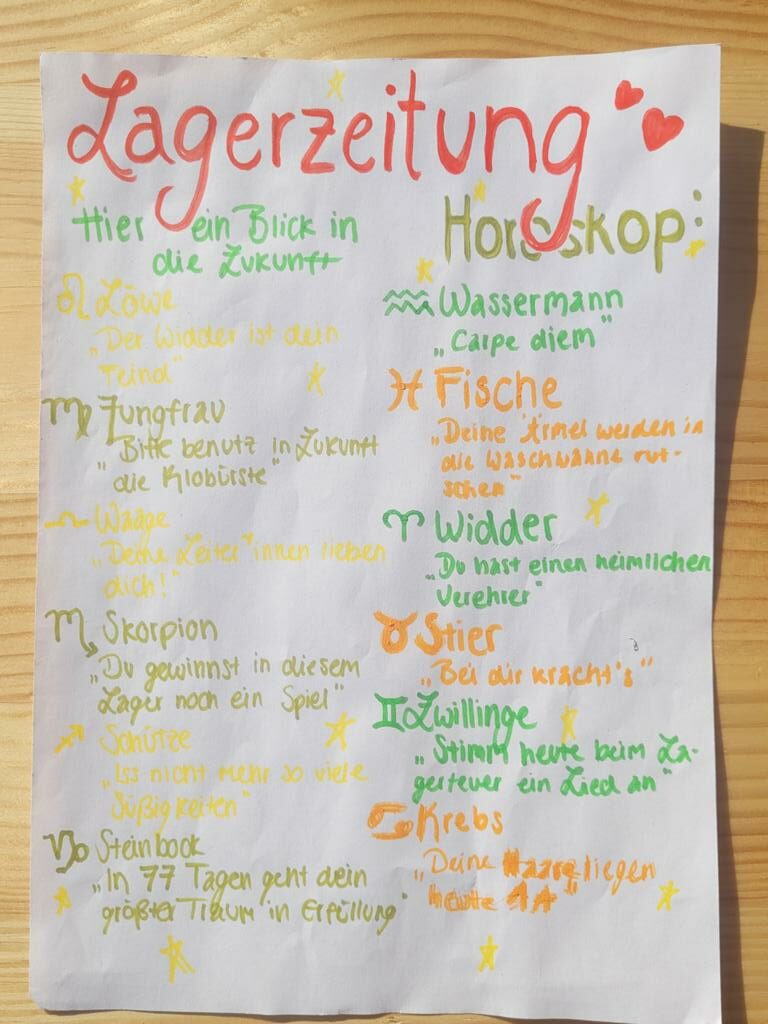 Lagerzeitung
Hier ein Blick in
die Zukunft
Horoskop:
♌ Löwe
„Der Widder ist dein
Feind"
♍ Jungfrau
„Bitte benutz in Zukunft
die Klobürste"
♎ Waage
„Deine Leiter*innen lieben
dich!"
♏ Skorpion
„Du gewinnst in diesem
Lager noch ein Spiel"
♐ Schütze
„Iss nicht mehr so viele
Süßigkeiten"
♑ Steinbock
„In 77 Tagen geht dein
größter Traum in Erfüllung"
♒ Wassermann
„Carpe diem"
♓ Fische
„Deine Ärmel werden in
die Waschwanne rut-
schen"
♈ Widder
„Du hast einen heimlichen
Verehrer"
♉ Stier
„Bei dir kracht's"
♊ Zwillinge
„Stimm heute beim La-
gerfeuer ein Lied an"
♋ Krebs
„Deine Haare liegen
heute 1A"